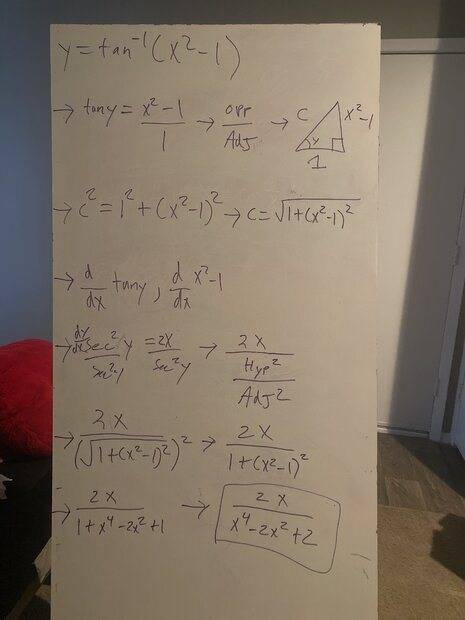 y = tan⁻¹(x²-1)
→ tany = x²-1/1 → opp/Adj → C x²-1 y 1
→ c² = 1² + (x²-1)² → c = √1+(x²-1)²
→ d/dx tany, d/dx x²-1
→ dy/dx sec²y/sec²y = 2x/sec²y → 2x/Hyp²/Adj²
→ 2x/(√1+(x²-1)²)² → 2x/1+(x²-1)²
→ 2x/1+x⁴-2x²+1 → 2x/x⁴-2x²+2